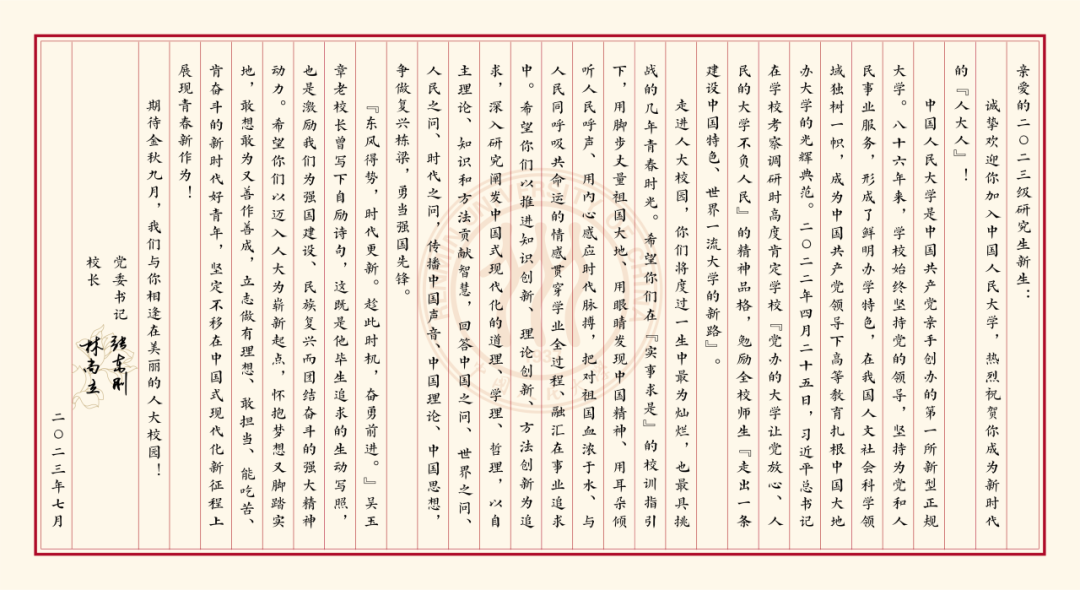 亲爱的二〇二三级研究生新生：
诚挚欢迎你加入中国人民大学，热烈祝贺你成为新时代
的『人大人』！
中国人民大学是中国共产党亲手创办的第一所新型正规
大学。八十六年来，学校始终坚持党的领导，坚持为党和人
民事业服务，形成了鲜明办学特色，在我国人文社会科学领
域独树一帜，成为中国共产党领导下高等教育扎根中国大地
办大学的光辉典范。二〇二二年四月二十五日，习近平总书记
在学校考察调研时高度肯定学校『党办的大学让党放心、人
民的大学不负人民』的精神品格，勉励全校师生『走出一条
建设中国特色、世界一流大学的新路』。
走进人大校园，你们将度过一生中最为灿烂，也最具挑
战的几年青春时光。希望你们在『实事求是』的校训指引
下，用脚步丈量祖国大地、用眼睛发现中国精神、用耳朵倾
听人民呼声、用内心感应时代脉搏，把对祖国血浓于水、与
人民同呼吸共命运的情感贯穿学业全过程、融汇在事业追求
中。希望你们以推进知识创新、理论创新、方法创新为追
求，深入研究阐发中国式现代化的道理、学理、哲理，以自
主理论、知识和方法贡献智慧，回答中国之问、世界之问、
人民之问、时代之问，传播中国声音、中国理论、中国思想，
争做复兴栋梁，勇当强国先锋。
『东风得势，时代更新。趁此时机，奋勇前进。』吴玉
章老校长曾写下自励诗句，这既是他毕生追求的生动写照，
也是激励我们为强国建设、民族复兴而团结奋斗的强大精神
动力。希望你们以迈入人大为崭新起点，怀抱梦想又脚踏实
地，敢想敢为又善作善成，立志做有理想、敢担当、能吃苦、
肯奋斗的新时代好青年，坚定不移在中国式现代化新征程上
展现青春新作为！
期待金秋九月，我们与你相逢在美丽的人大校园！
党委书记 张东刚
校长 林尚立
二〇二三年七月
RENMIN UNIVERSITY OF CHINA